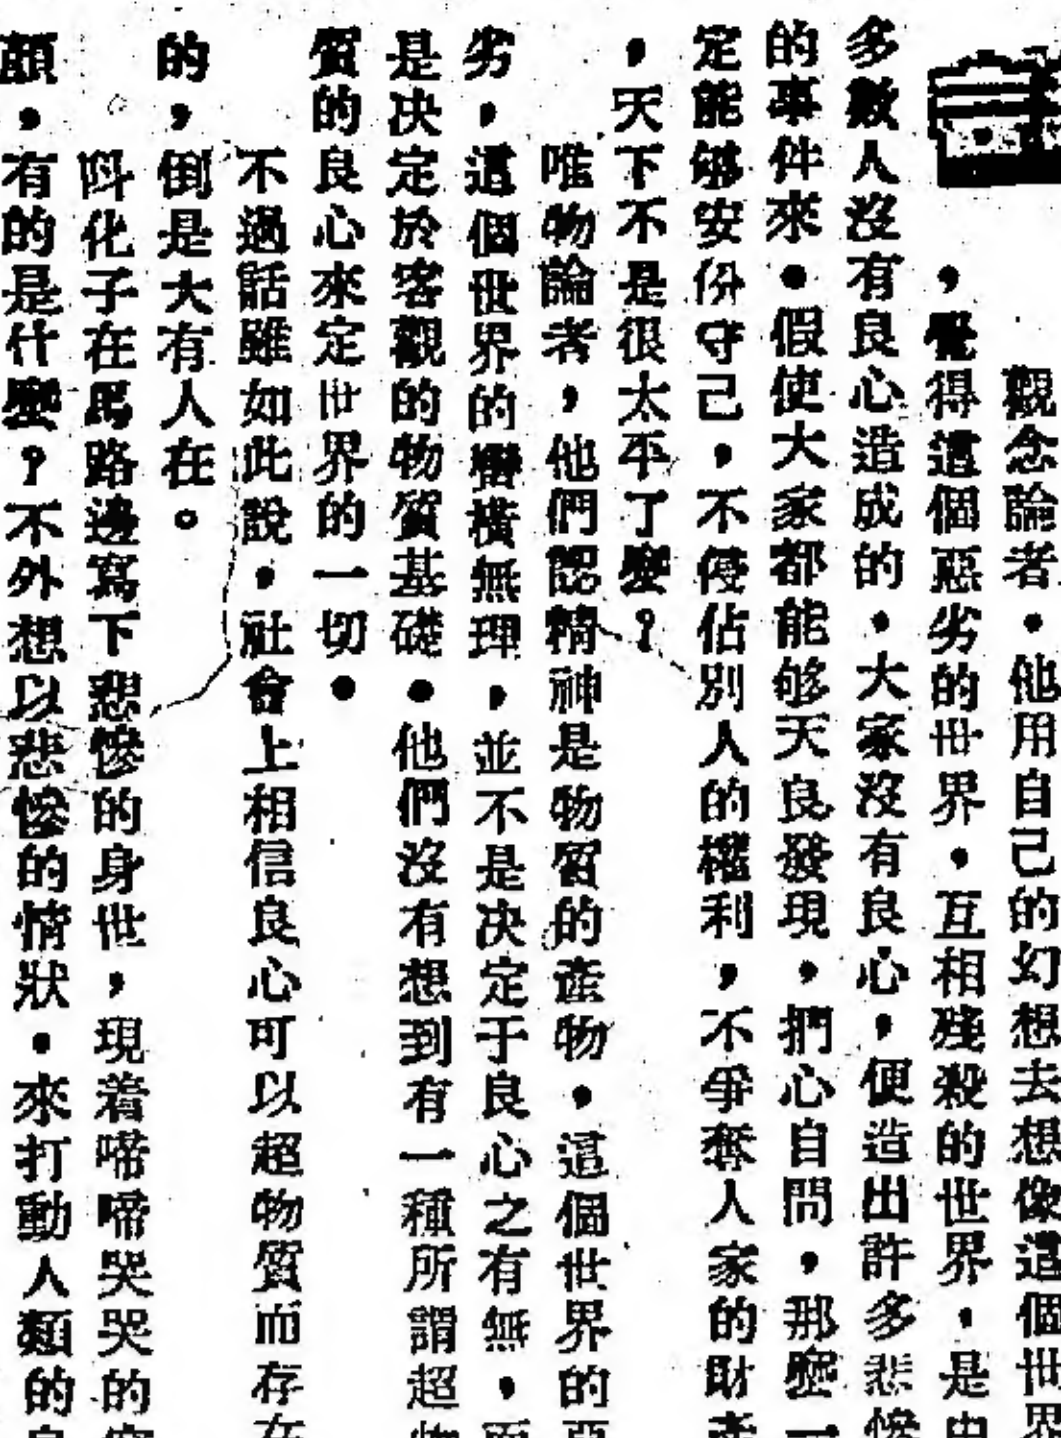 觀念論者，他用自己的幻想去想像這個世界
，覺得這個惡劣的世界，互相殘殺的世界，是由
多數人沒有良心造成的，大家沒有良心，便造出許多悲慘
的事件來。假使大家都能够天良發現，捫心自問，那麼一
定能够安份守己，不侵佔別人的權利，不爭奪人家的財產
，天下不是很太平了麼？
唯物論者，他們認精神是物質的產物，這個世界的惡
劣，這個世界的蠻橫無理，並不是决定于良心之有無，而
是决定於客觀的物質基礎。他們沒有想到有一種所謂超物
質的良心來定世界的一切。
不過話雖如此說，社會上相信良心可以超物質而存在
的，倒是大有人在。
叫化子在馬路邊寫下悲慘的身世，現着啼啼哭哭的
顏，有的是什麼？不外想以悲慘的情狀，來打動人類的良